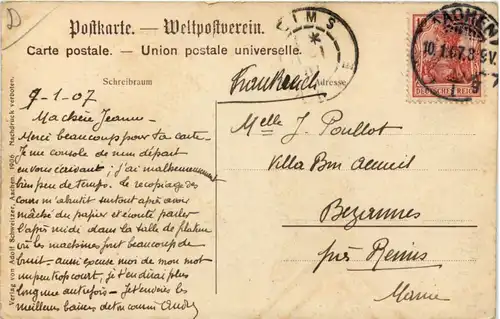 Postkarte. — Weltpostverein.
Carte postale. – Union postale universelle.
Schreibraum
Adresse
EIMS
AACHEN
10.1.07.8-9V.
DEUTSCHES REICH
Verlag von Adolf Schweitzer, Aachen. 1906 Nachdruck verboten.
9-1-07
Ma chère Jeanne –
Merci beaucoup pour ta carte –
Je me console de mon départ
en vous écrivant; j'ai malheureusement
bien peu de temps. Le recopiage des
cours m'abrutit surtout après avoir
mâché du papier et écouté parler
l'après midi dans la salle de
où les machines font beaucoup de
bruit – aussi excuse moi de mon mot
un peu trop court, je t'en dirai plus
long une autre fois – Je t'envoie les
meilleurs baisers de ton cousin André
Frankreich
Melle J. Poullot
Villa
Bezannes
près Reims
Marne